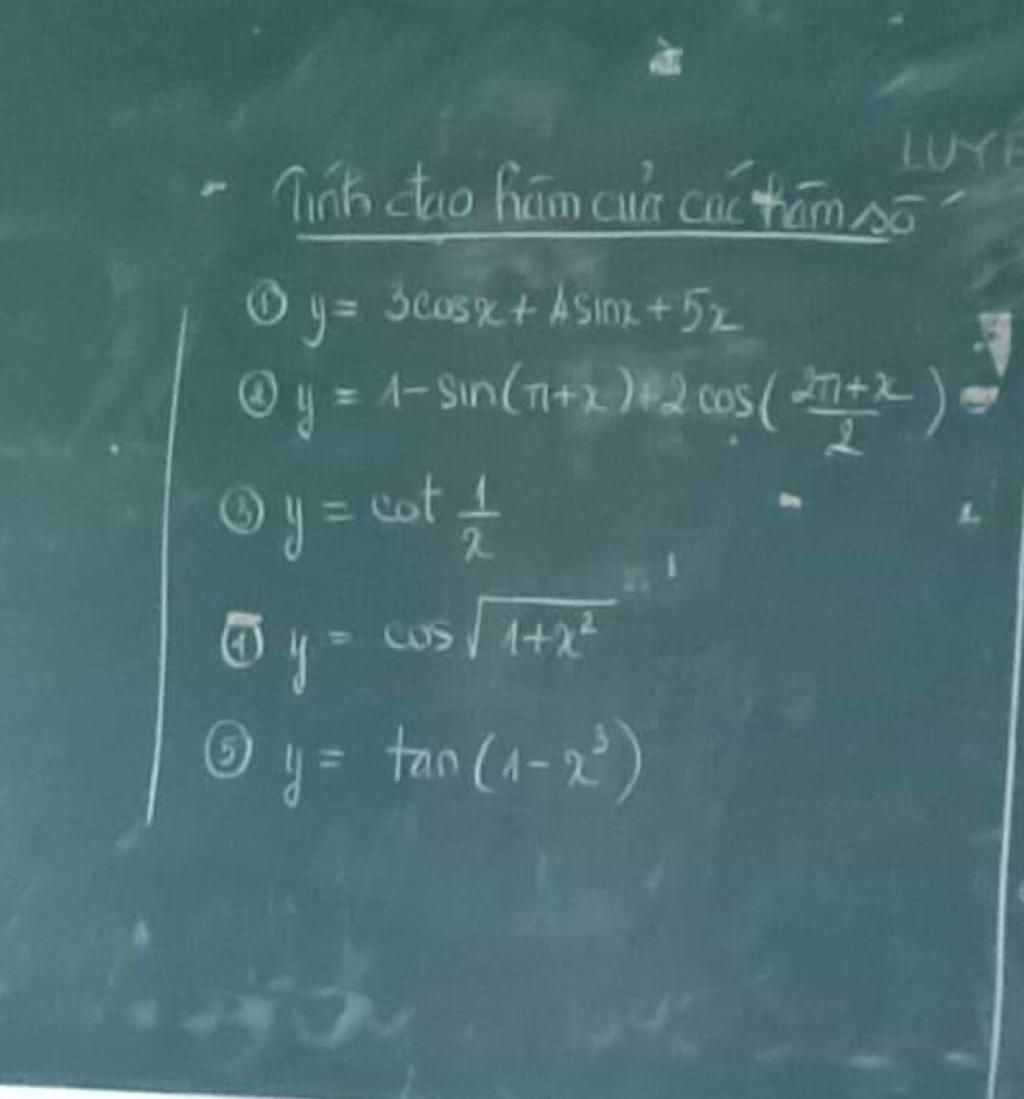 LUYỆ
- Tính đạo hàm của các hàm số
① y = 3cosx + 4sinx + 5x
② y = 1 - sin(π+x) + 2cos(\frac{2π+x}{2})
③ y = cot \frac{1}{x}
④ y = cos√(1+x²)
⑤ y = tan(1-x³)